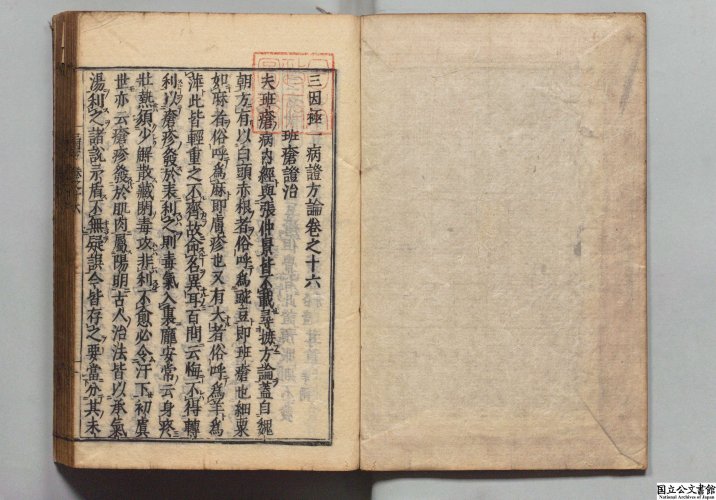 三因極一病證方論卷之十六
班瘡證治
夫班瘡病內經與張仲景皆不載尋㨿方論蓋自魏
朝方有以白頭赤根者俗呼爲豌豆即班瘡也細粟
如麻者俗呼爲麻即膚疹也又有大者俗呼爲羊爲
滓此皆輕重之不齊故命名異耳百問云悔不得轉
利以瘡疹發於表利之則毒氣入裏龐安常云身疼
壯熱須少解散藏閉毒攻非利不愈必令汗下初虞
世亦云瘡疹發於肌肉屬陽明古人治法皆以承氣
湯利之諸說矛盾不無疑誤今皆存之要當分其未
国立公文書館
National Archives of Japan